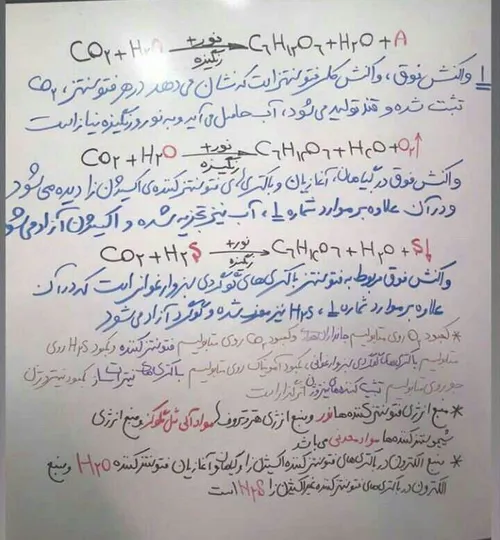 CO₂ + H₂A نور+ رنگیزه → C₆H₁₂O₆ + H₂O + A
۱ واکنش فوق، واکنش کلی فتوسنتز است که نشان می‌دهد در هر فتوسنتز، CO₂
تثبیت شده و قند تولید می‌شود، آب حاصل می‌آید و به نور و رنگیزه نیاز است
CO₂ + H₂O نور+ رنگیزه → C₆H₁₂O₆ + H₂O + O₂↑
واکنش فوق در گیاهان، آغازیان و باکتری‌های فتوسنتزکننده‌ی اکسیژن‌زا دیده می‌شود
و در آن علاوه بر موارد شماره ۱، آب نیز تجزیه شده و اکسیژن آزاد می‌شود
CO₂ + H₂S نور+ رنگیزه → C₆H₁₂O₆ + H₂O + S↓
واکنش فوق مربوط به فتوسنتز باکتری‌های گوگردی سبز و ارغوانی است که در آن
علاوه بر موارد شماره ۱، H₂S نیز مصرف شده و گوگرد آزاد می‌شود
* کمبود O₂ روی متابولیسم جانداران هوازی و کمبود CO₂ روی متابولیسم فتوسنتزکننده و کمبود H₂S روی
متابولیسم باکتری‌های گوگردی سبز و ارغوانی، کمبود آمونیاک روی متابولیسم باکتری‌های نیترات‌ساز کمبود نیتروژن
جو روی متابولیسم تثبیت‌کننده‌های نیتروژن اثرگذار است
* منبع انرژی فتوسنتزکننده‌ها نور و منبع انرژی هتروتروف‌ها مواد آلی مثل گلوکز و منبع انرژی
شیمیوسنتزکننده‌ها مواد معدنی می‌باشد
* منبع الکترون در باکتری‌های فتوسنتزکننده اکسیژن‌زا و گیاهان و آغازیان فتوسنتزکننده H₂O و منبع
الکترون در باکتری‌های فتوسنتزکننده غیراکسیژن‌زا H₂S است